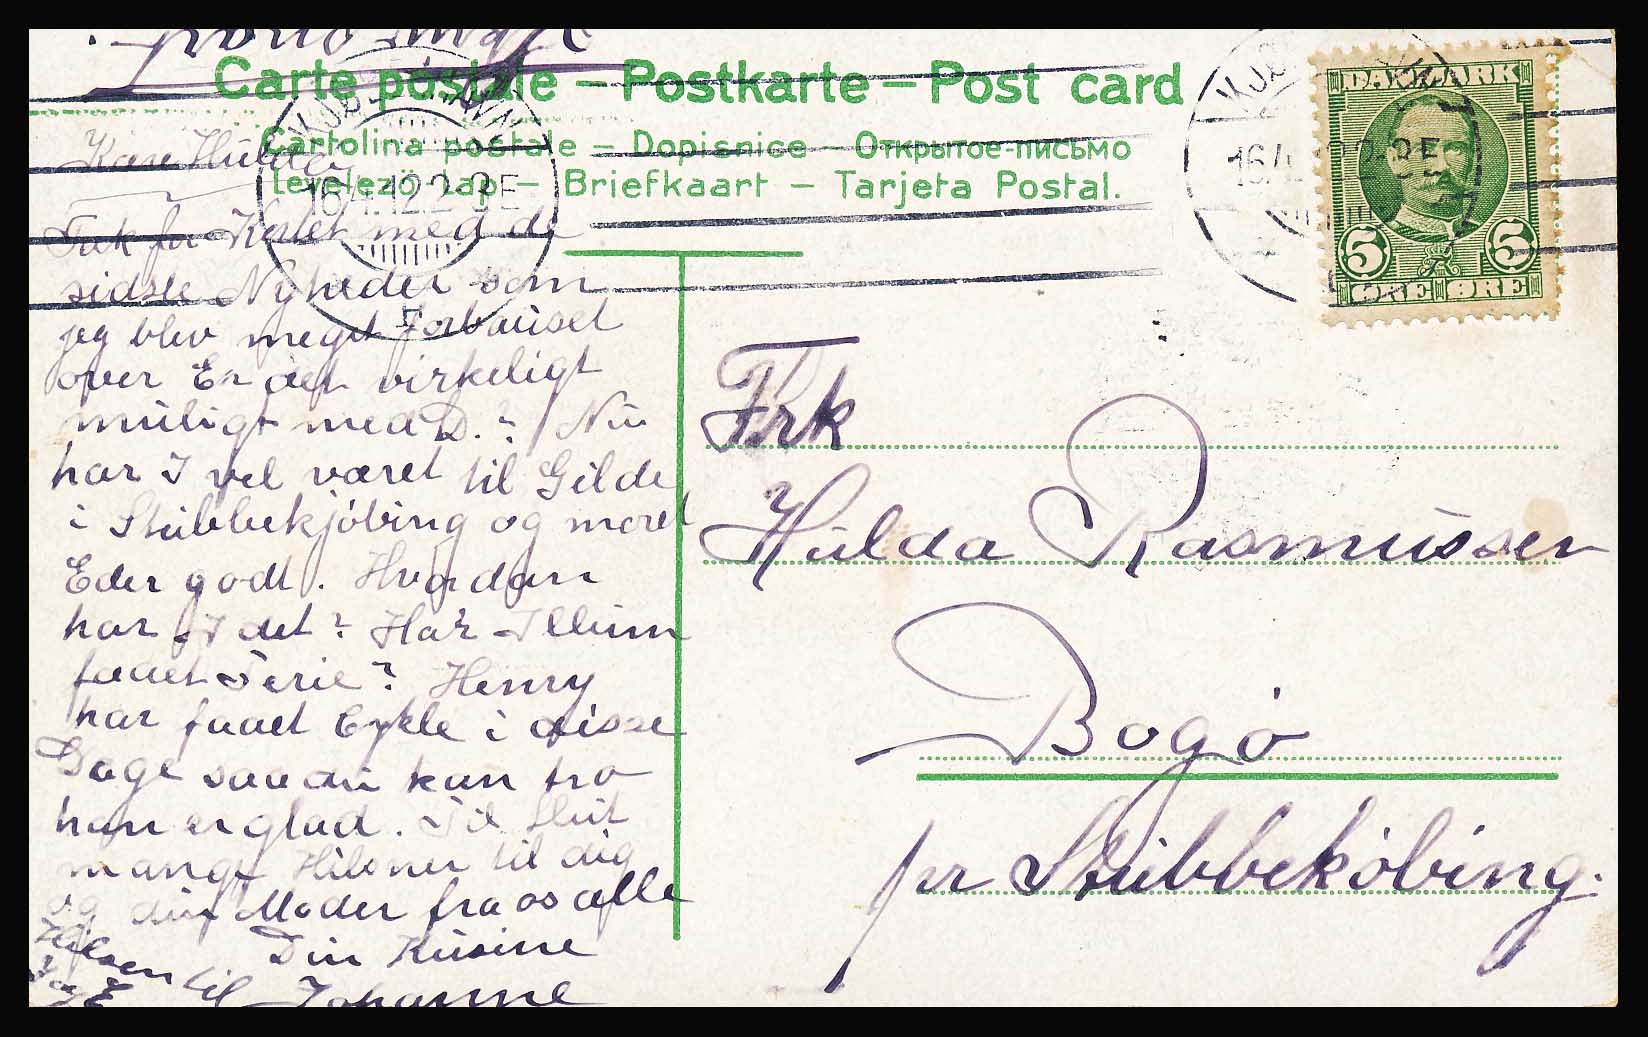 Carte postale – Postkarte – Post card
Cartolina postale – Dopisnice – Открытое-письмо
Levelező-Lap – Briefkaart – Tarjeta Postal.
DANMARK
5 5
ØRE ØRE
16.4.12 2-3E
Kære Hulda
Tak for Kortet med de
sidste Nyheder som
jeg blev meget forbauset
over Er det virkeligt
muligt med D.? Nu
har I vel været til Gilde
i Stubbekjöbing og moret
Eder godt. Hvordan
har I det? Har Illum
faaet Ferie? Henry
har faaet Cykle i disse
Dage saa du kan tro
han er glad. Til Slut
mange Hilsner til dig
og din Moder fra os alle
Din Kusine
Johanne
Hilsen til
Frk
Hulda Rasmussen
Bogö
pr Stubbeköbing.